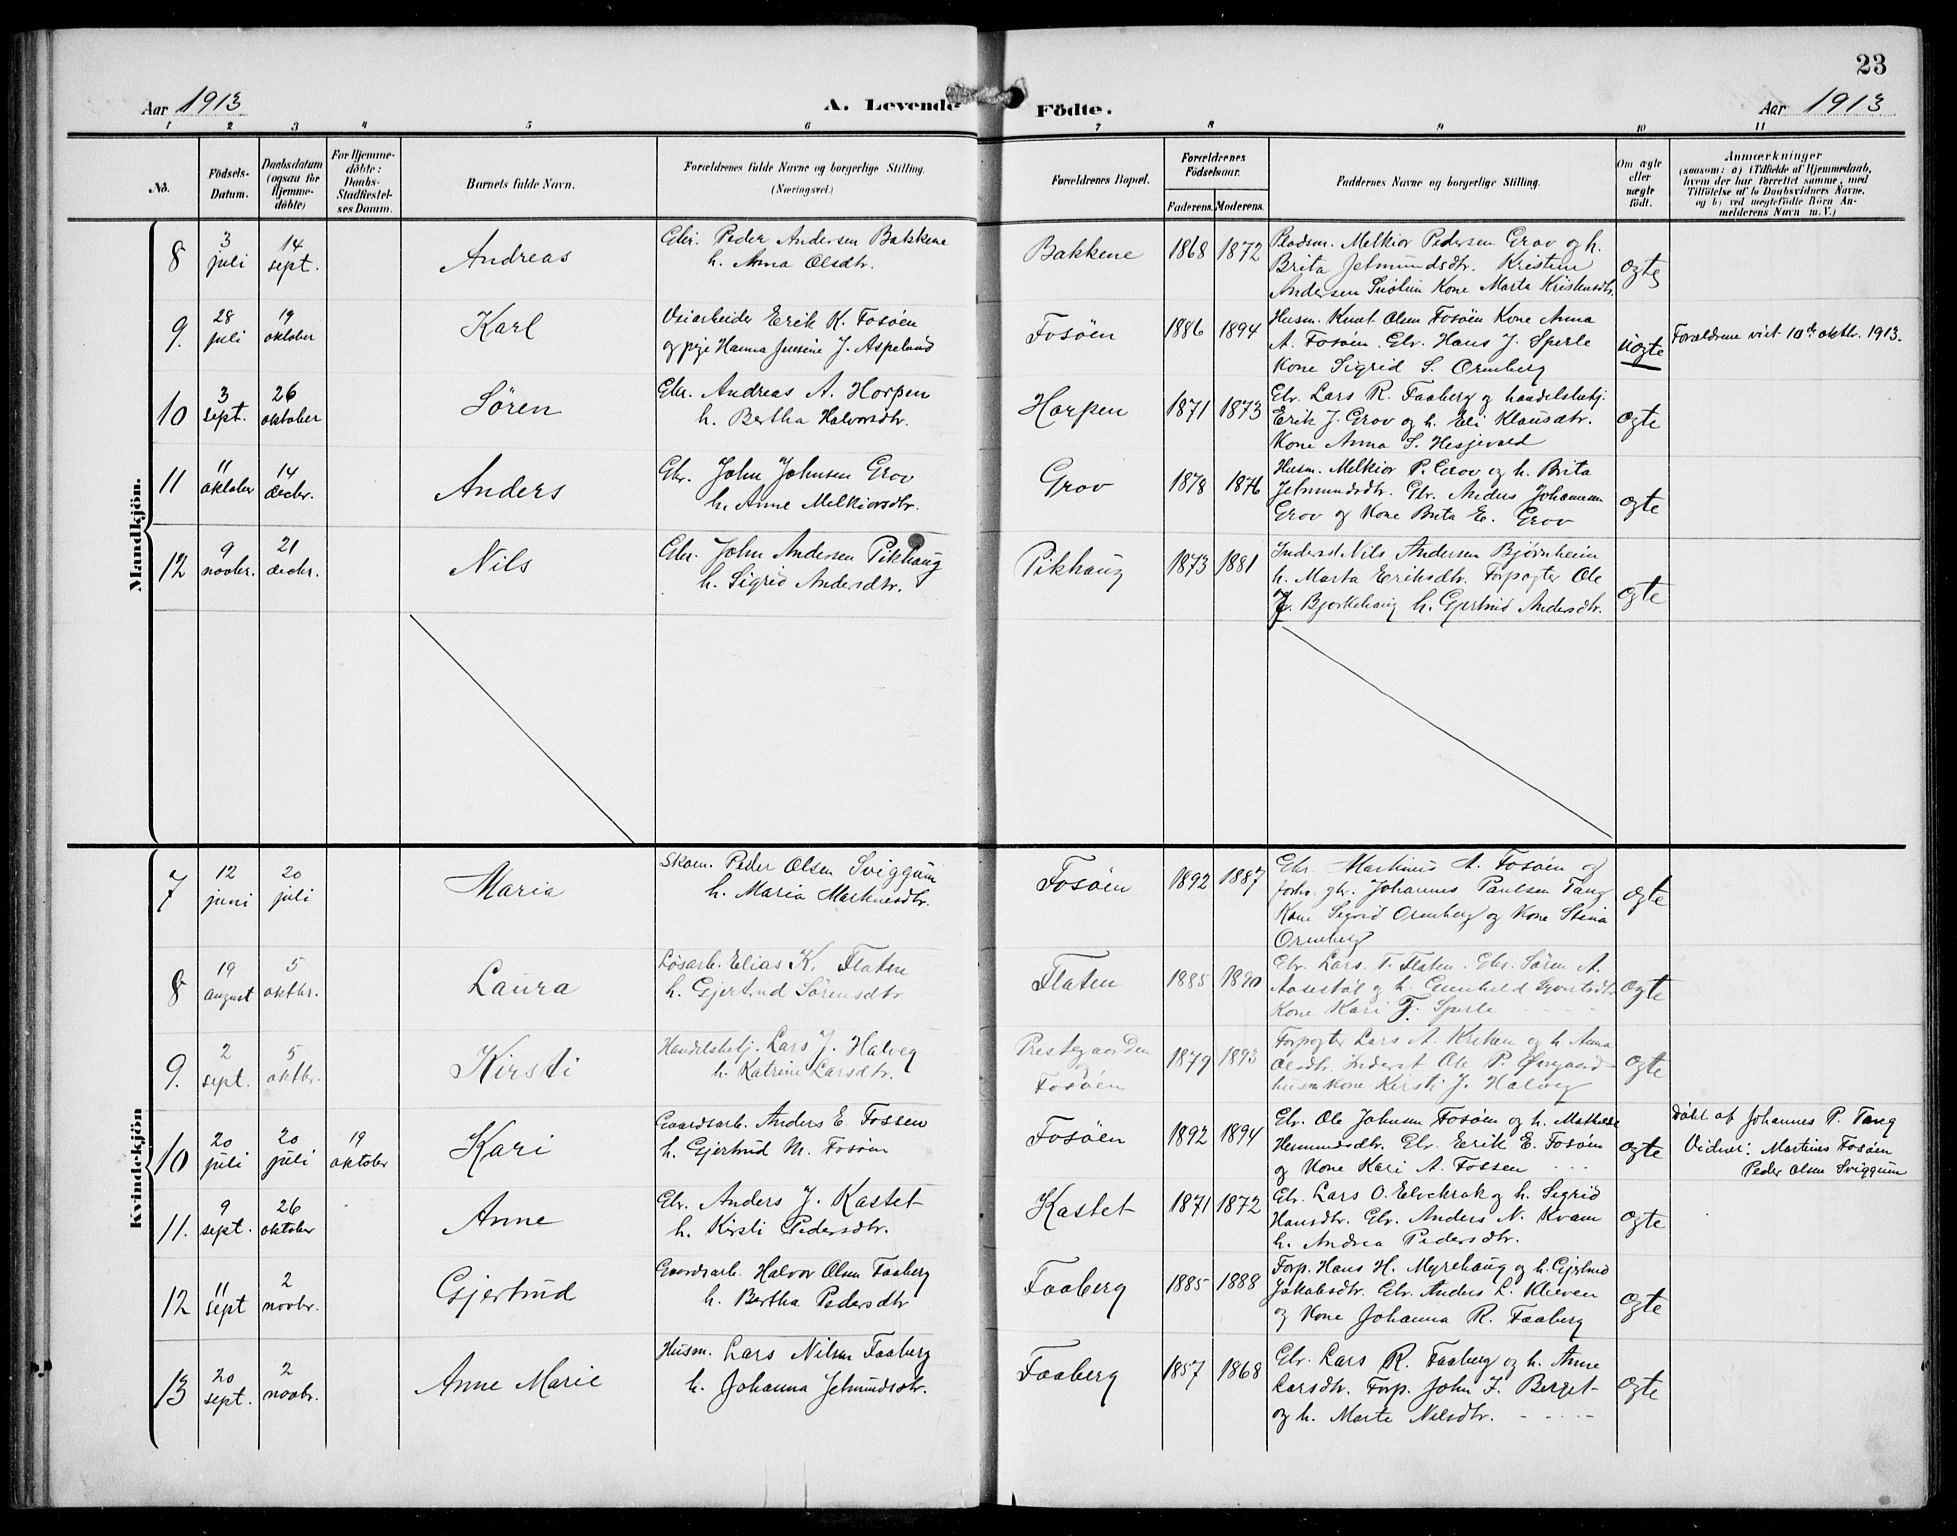 23
Aar 1913
A. Levende Födte.
Aar 1913
1 2 3 4 5 6 7 8 9 10 11
No.
Födsels-
Datum.
Daabsdatum
(ogsaa for
Hjemme-
döbte)
For Hjemme-
döbte:
Daabs-
Stadfæstel-
ses Datum.
Barnets fulde Navn.
Forældrenes fulde Navne og borgerlige Stilling.
(Næringsvei.)
Forældrenes Bopæl.
Forældrenes
Födselsaar.
Faderens. Moderens.
Faddernes Navne og borgerlige Stilling.
Om ægte
eller
uægte
født.
Anmærkninger
(saasom: a) i Tilfælde af Hjemmedaab,
hvem der har forrettet samme, med
Tilföielse af to Daabsvidners Navne,
og b) ved uægtefödte Börn An-
melderens Navn m. V.)
Mandkjön.
8
3 juli
14 sept.
Andreas
Gbr. Peder Andersen Bakkene
h. Anna Olsdtr.
Bakkene
1868 1872
Pladsm. Melkior Pedersen Grov og h.
Brita Jetmundsdtr. Kristen
Andersen Kone Marta Kristensdtr.
ægte
9.
28 juli
19 oktober
Karl
Veiarbeider Erik K. Fosøen
og pige Hanna Jensine J. Aspelund
Fosøen
1886 1894
Husm. Knut Olsen Fosøen Kone Anna
A. Fosøen. Gbr. Hans J. Sperle
Kone Sigrid S. Ormberg
uægte
Forældrene viet 10de oktbr. 1913.
10
3 sept.
26 oktober
Sören
Gbr. Andreas A. Horpen
h. Bertha Halvorsdtr.
Horpen
1871 1873
Gbr. Lars R. Faaberg og handelsbetj.
Erik J. Grov og h. Eli Klausdtr.
Kone Anna S. Hesjevold
ægte
11
11 oktober
14 decbr.
Anders
Gbr. John Johnsen Grov
h. Anne Melkiorsdtr.
Grov
1878 1876
Husm. Melkior P. Grov og h. Brita
Jetmundsdtr. Gbr. Anders Johannesen
Grov og Kone Brita E. Grov
ægte
12
9 novbr.
21 decbr.
Nils
Gbr. John Andersen Pikhaug
h. Sigrid Andersdtr.
Pikhaug
1873 1881
Inderst Nils Andersen Bjørnheim
h. Marta Eriksdtr. Forpagter Ole
J. Bjorkehaug h. Gjertrud Andersdtr.
ægte
Kvindekjön
7
12 juni
20 juli
Maria
Skom. Peder Olsen Sviggum
h. Maria Martinusdtr.
Fosøen
1892 1887
Gbr. Martinus A. Fosøen og
forh. gbr. Johannes Paulsen Tang
Kone Sigrid Ormberg og Kone Stina
Ormberg
ægte
8
19 august
5 oktbr.
Laura
Løsarb. Elias K. Flaten
h. Gjertrud Sörensdtr.
Flaten
1885 1890
Gbr. Lars T. Flaten. Gbr. Sören A.
Aasestøl og h. Gunhild
Kone Kari J. Sperle
ægte
9.
2 sept.
5 oktbr.
Kirsti
Handelsbetj. Lars J. Halveg
h. Katrine Larsdtr.
Prestegaarden
Fosøen
1879 1893
Forpagter Lars A. Kreken og h. Anna
Olsdtr. Inderst Ole P. Øvregaard
husm. kone Kirsti J. Halveg
ægte
10
20 juli
20 juli
19 oktober
Kari
Gaardsarb. Anders E Fossen
h. Gjertrud M. Fosøen
Fosøen
1892 1894
Gbr. Ole Johnsen Fosøen og h. Mathilde
Hemmesdtr. Gbr. Erik E. Fosøen
og Kone Kari A. Fossen
ægte
Døbt af Johannes P. Tang
Vidner: Martinus Fosøen
Peder Olsen Sviggum
11.
9 sept.
26 oktober
Anne
Gbr. Anders J. Kastet
h. Kirsti Pedersdtr.
Kastet
1871 1872
Gbr. Lars O. Elvekrok og h. Sigrid
Hansdtr. Gbr. Anders N. Kvam
h. Andrea Pedersdtr.
ægte
12
11 sept
2 novbr.
Gjertrud
Gaardsarb. Halvor Olsen Faaberg
h. Bertha Pedersdtr
Faaberg
1885 1888
Forp. Hans H. Myrehaug og h. Gjertrud
Jakobsdtr. Gbr. Anders L. Kleven
og Kone Johanna R. Faaberg
ægte
13
20 sept.
2 novbr.
Anne Marie
Husm. Lars Nilsen Faaberg
h. Johanna Jetmundsdtr.
Faaberg
1857 1868
Gbr. Lars R. Faaberg og h. Anne
Larsdtr. Forp. John J. Berget
og h. Marte Nilsdtr.
ægte